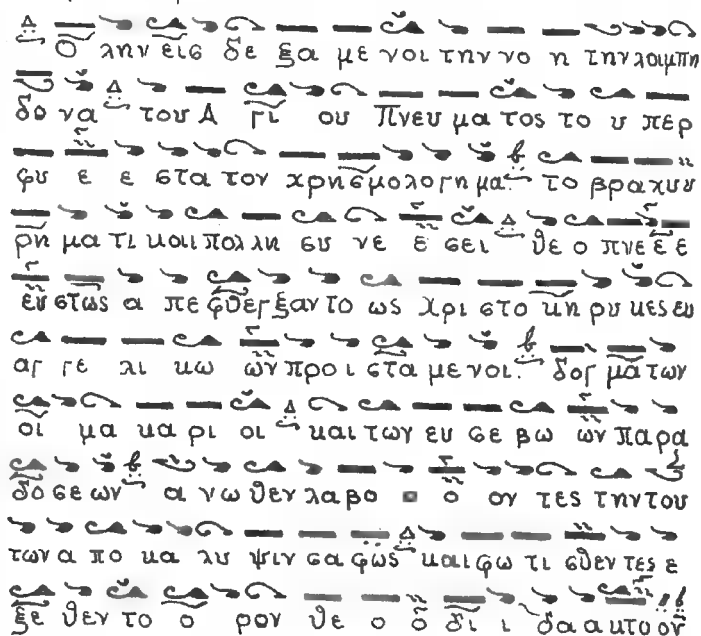 Ο λην εις δε ξα με νοι την νο η την λαμπη
δο να του Α γι ου Πνευ μα τος το υ περ
φυ ε ε στα τον χρησμολογη μα. το βραχυυ
ρη μα τι και πολ λη συ νε ε σει θε ο πνε ε ε
ευ στως α πε φθεγ ξαν το ως χρι στο κη ρυ κες ευ
αγ γε λι κω ων προ ι στα με νοι. δογ μα των
οι μα κα ρι οι και των ευ σε βω ων παρα
δο σε ων α νω θεν λαβο ο ον τες την του
των α πο κα λυ ψιν σα φως και φω τι σθεν τες ε
ξε θεν το ο ρον θε ο ο δι ι δα α κτο ον